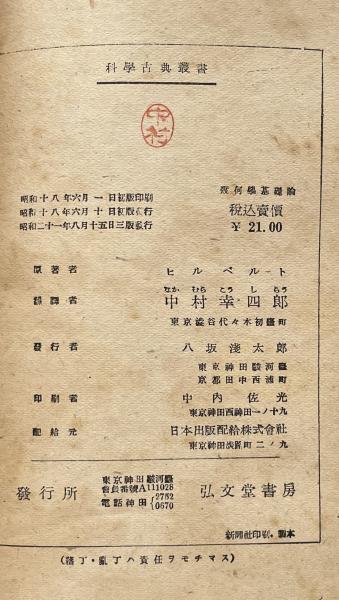 科學古典叢書
中村
幾何學基礎論
税込賣價
￥ 21.00
昭和十八年六月一日初版印刷
昭和十八年六月十日初版發行
昭和二十一年八月十五日三版發行
原著者 ヒルベルート
なか むら こう し らう
飜譯者 中村幸四郎
東京澁谷代々木初臺町
發行者 八坂淺太郎
東京神田駿河臺
京都田中西浦町
印刷者 中内佐光
東京神田西神田一ノ十九
配給元 日本出版配給株式會社
東京神田淡路町二ノ九
發行所
東京神田駿河臺
會員番號A111028
電話神田{2762
0670
弘文堂書房
新聞社印刷・製本
(落丁・亂丁ハ責任ヲモチマス)